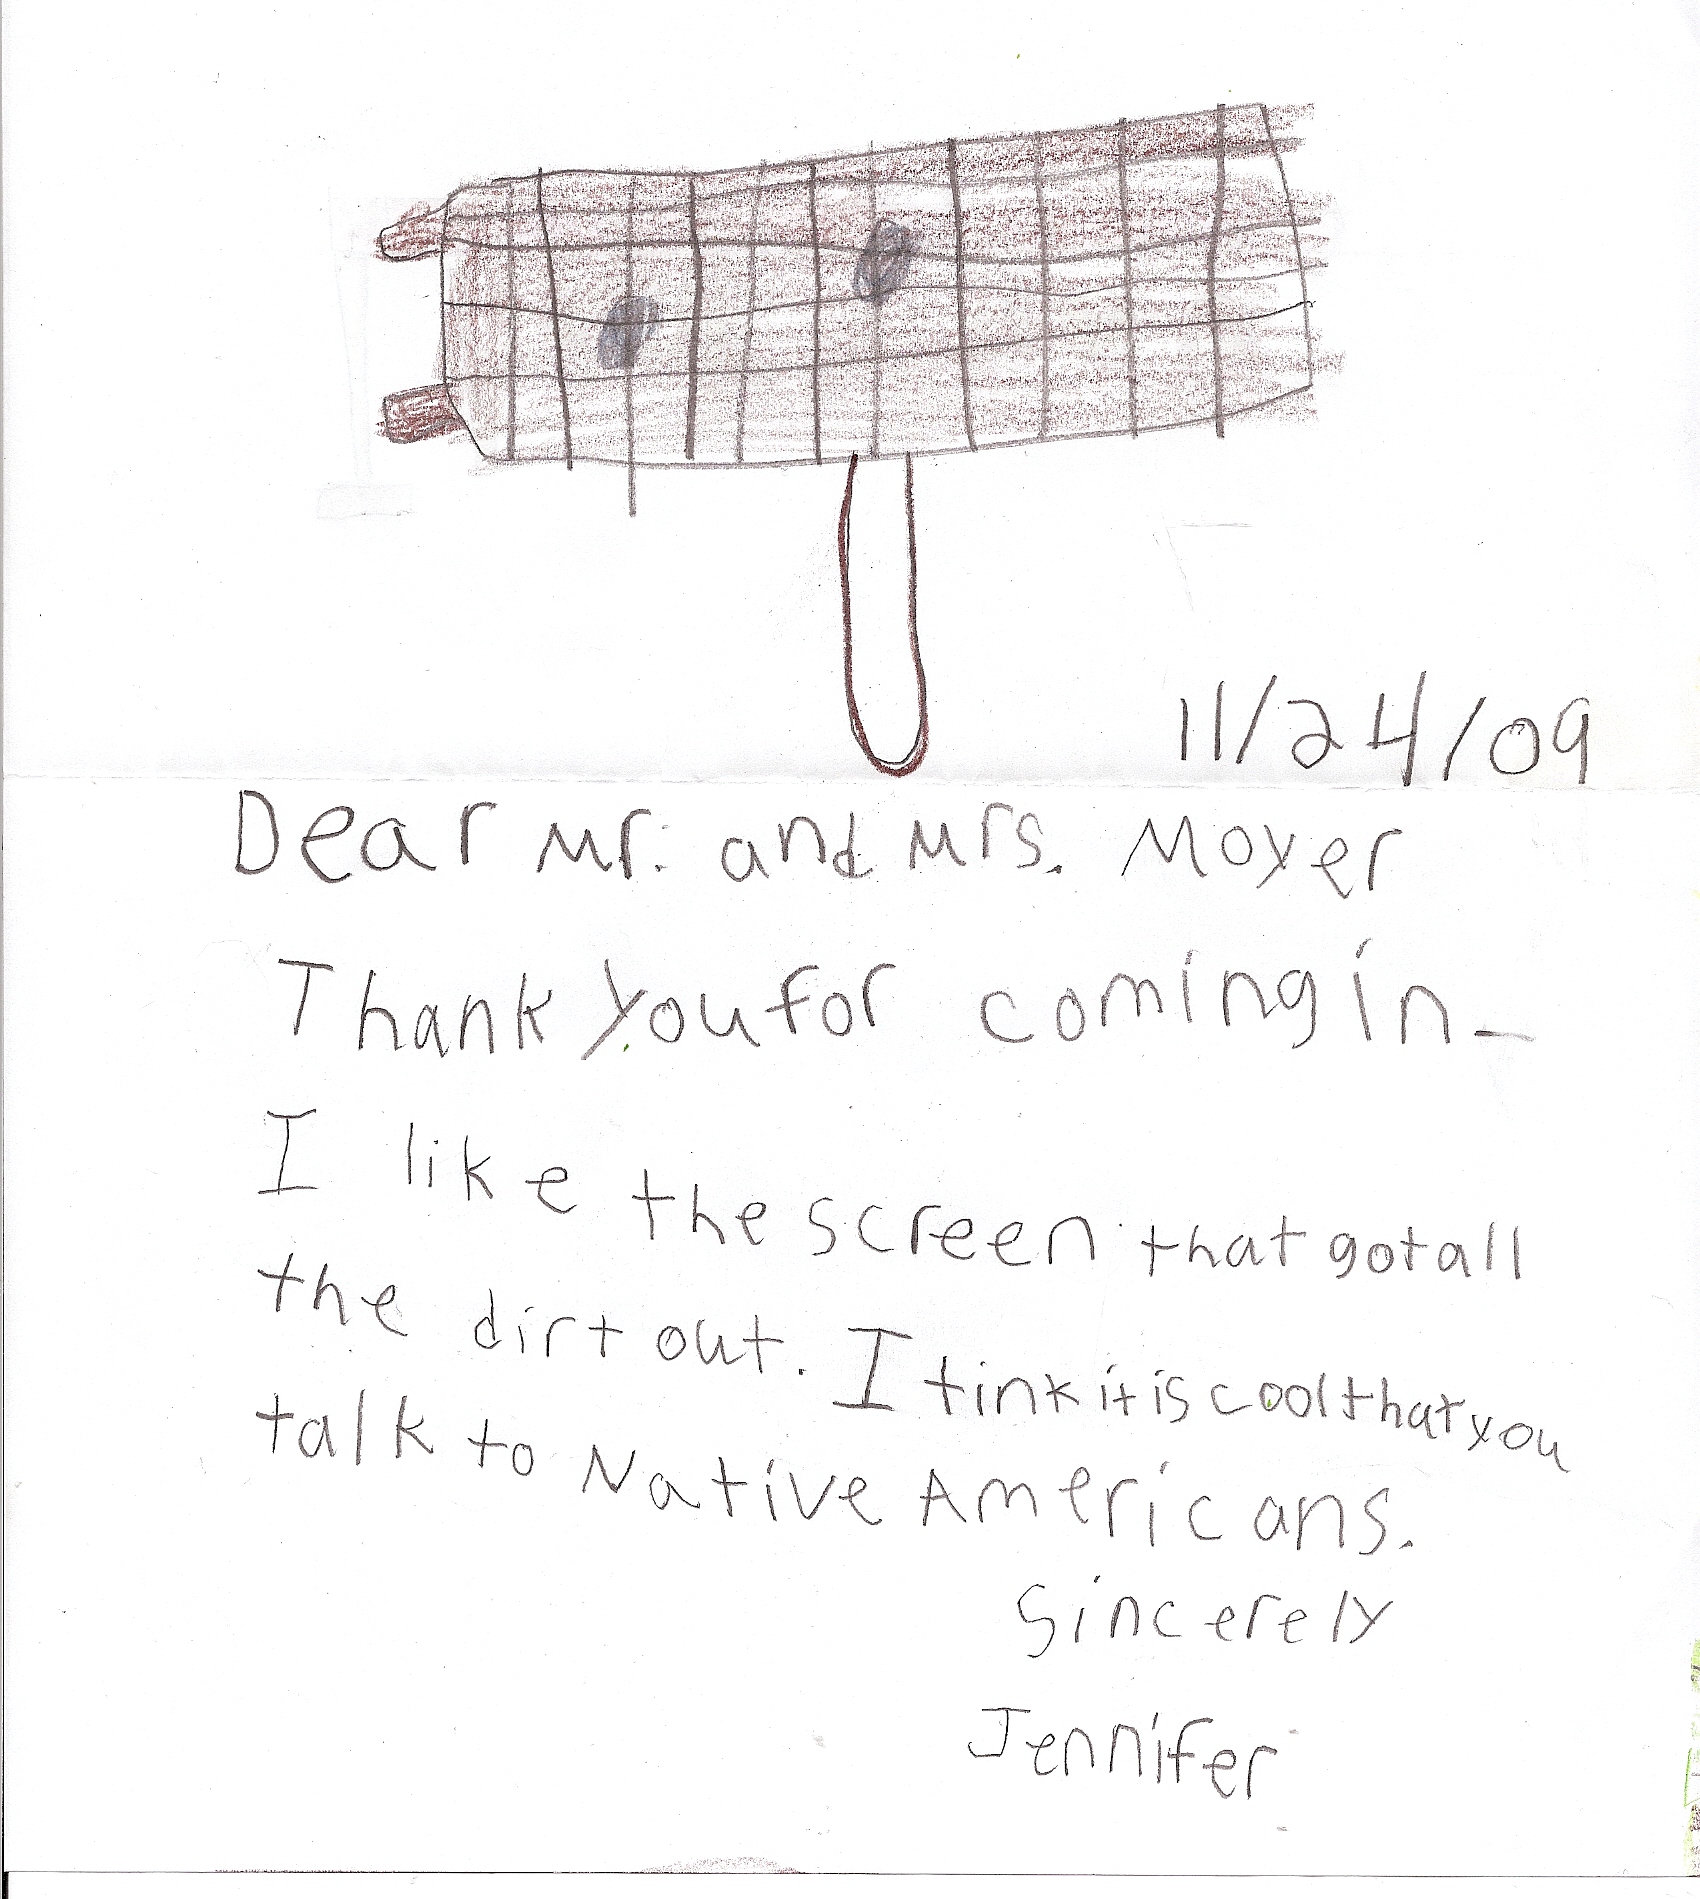 11/24/09
Dear Mr. and Mrs. Moyer
Thank you for coming in-
I like the screen that got all
the dirt out. I tink it is cool that you
talk to Native Americans.
Sincerely
Jennifer